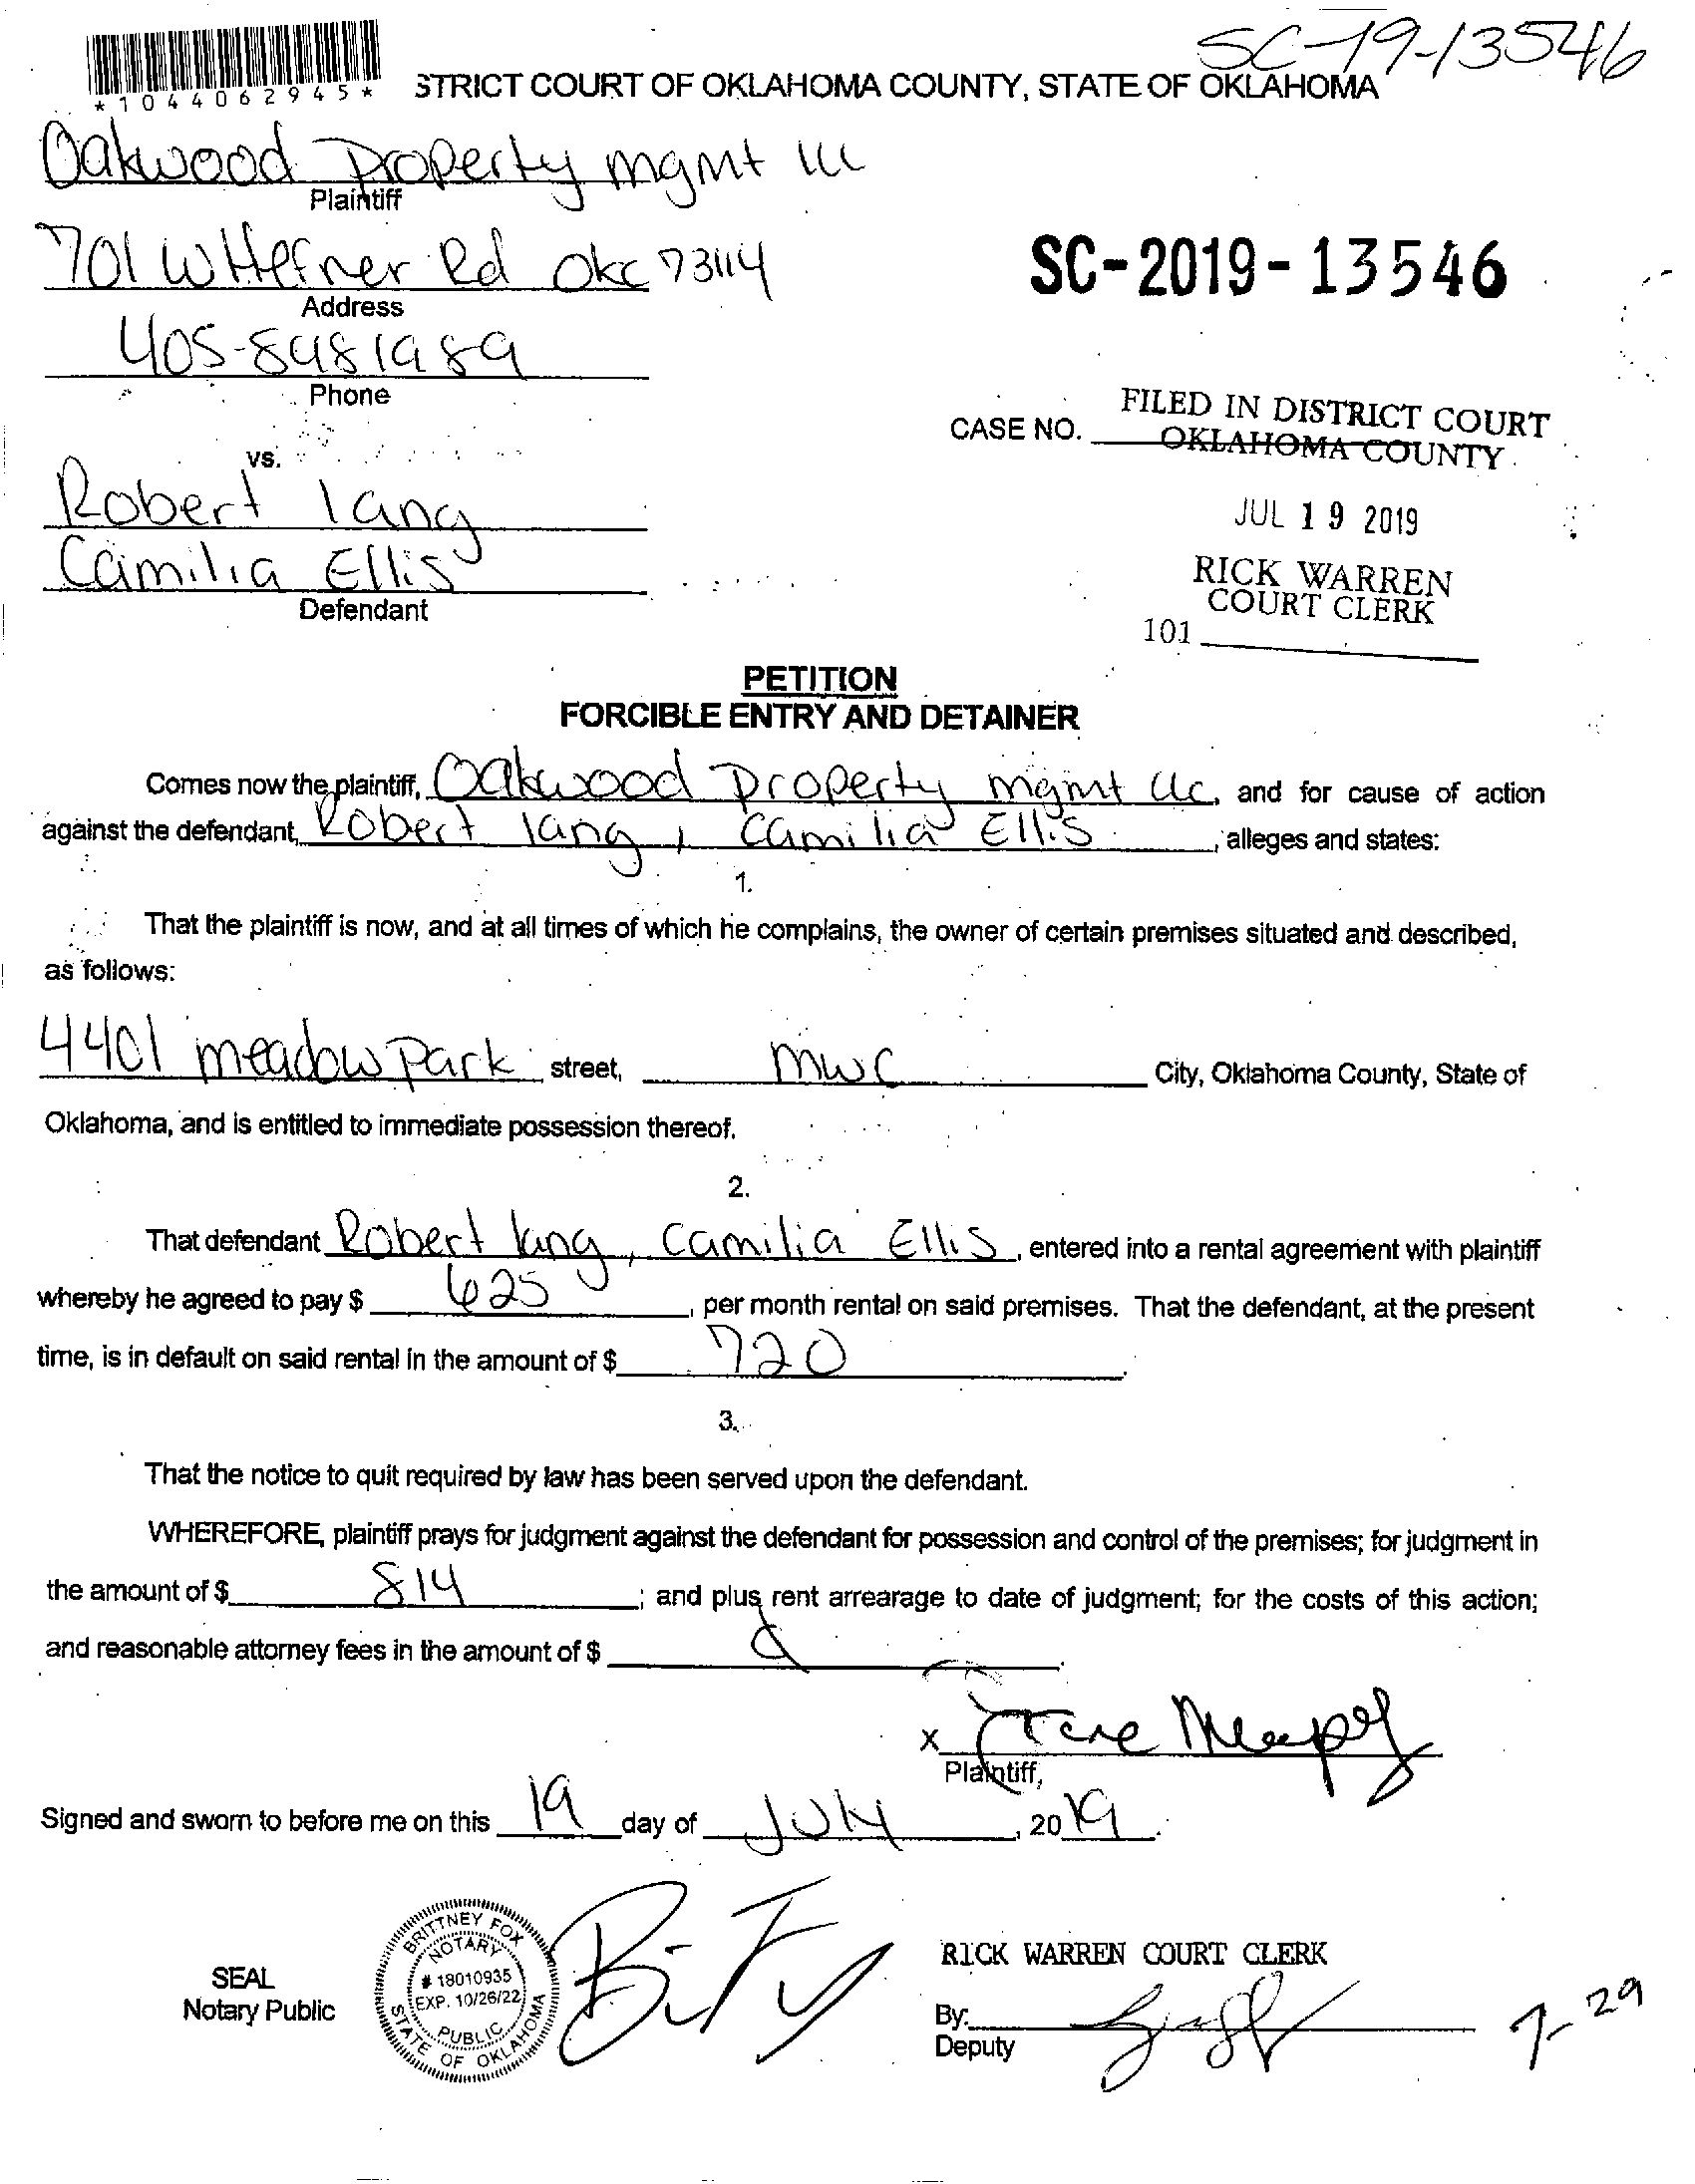 SC-19-13546
*1044062945*
STRICT COURT OF OKLAHOMA COUNTY, STATE OF OKLAHOMA
Oakwood Property mgmt llc
Plaintiff
701 W Hefner Rd Okc 73114
Address
SC-2019-13546
405-8481989
Phone
CASE NO.
FILED IN DISTRICT COURT
OKLAHOMA COUNTY
vs.
Robert lang
JUL 19 2019
Camilia Ellis
Defendant
RICK WARREN
COURT CLERK
101
PETITION
FORCIBLE ENTRY AND DETAINER
Comes now the plaintiff, Oakwood Property mgmt llc, and for cause of action
against the defendant, Robert lang, Camilia Ellis, alleges and states:
1.
That the plaintiff is now, and at all times of which he complains, the owner of certain premises situated and described,
as follows:
4401 meadow Park street, mwc City, Oklahoma County, State of
Oklahoma, and is entitled to immediate possession thereof.
2.
That defendant Robert lang, Camilia Ellis, entered into a rental agreement with plaintiff
whereby he agreed to pay $ 625, per month rental on said premises. That the defendant, at the present
time, is in default on said rental in the amount of $ 720.
3.
That the notice to quit required by law has been served upon the defendant.
WHEREFORE, plaintiff prays for judgment against the defendant for possession and control of the premises; for judgment in
the amount of $ 814; and plus rent arrearage to date of judgment; for the costs of this action;
and reasonable attorney fees in the amount of $
X
Plaintiff,
Signed and sworn to before me on this 19 day of July, 2019.
SEAL
Notary Public
BRITTNEY FOX
NOTARY
# 18010935
EXP. 10/26/22
PUBLIC
STATE OF OKLAHOMA
RICK WARREN COURT CLERK
By:
Deputy
7-29